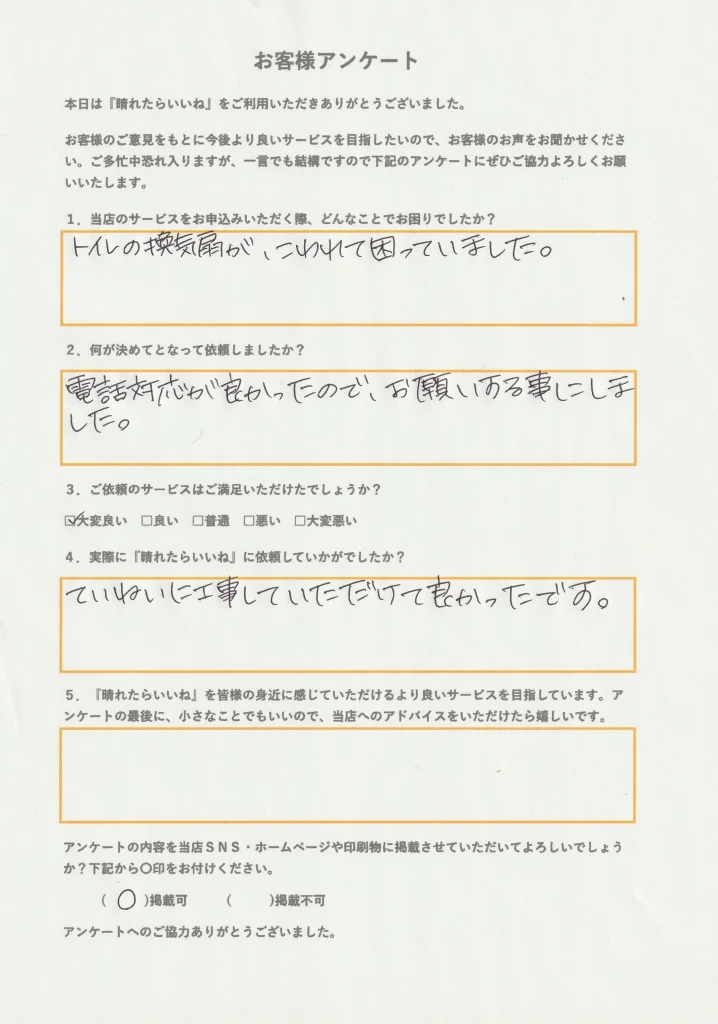 お客様アンケート
本日は『晴れたらいいね』をご利用いただきありがとうございました。
お客様のご意見をもとに今後より良いサービスを目指したいので、お客様のお声をお聞かせくださ
い。ご多忙中恐れ入りますが、一言でも結構ですので下記のアンケートにぜひご協力よろしくお願
いいたします。
1．当店のサービスをお申込みいただく際、どんなことでお困りでしたか？
トイレの換気扇が、こわれて困っていました。
2．何が決めてとなって依頼しましたか？
電話対応が良かったので、お願いする事にしま
した。
3．ご依頼のサービスはご満足いただけたでしょうか？
☑大変良い　□良い　□普通　□悪い　□大変悪い
4．実際に『晴れたらいいね』に依頼していかがでしたか？
ていねいに工事していただけて良かったです。
5．『晴れたらいいね』を皆様の身近に感じていただけるより良いサービスを目指しています。ア
ンケートの最後に、小さなことでもいいので、当店へのアドバイスをいただけたら嬉しいです。
アンケートの内容を当店ＳＮＳ・ホームページや印刷物に掲載させていただいてよろしいでしょう
か？下記から〇印をお付けください。
（ 〇 ）掲載可　　（　　）掲載不可
アンケートへのご協力ありがとうございました。